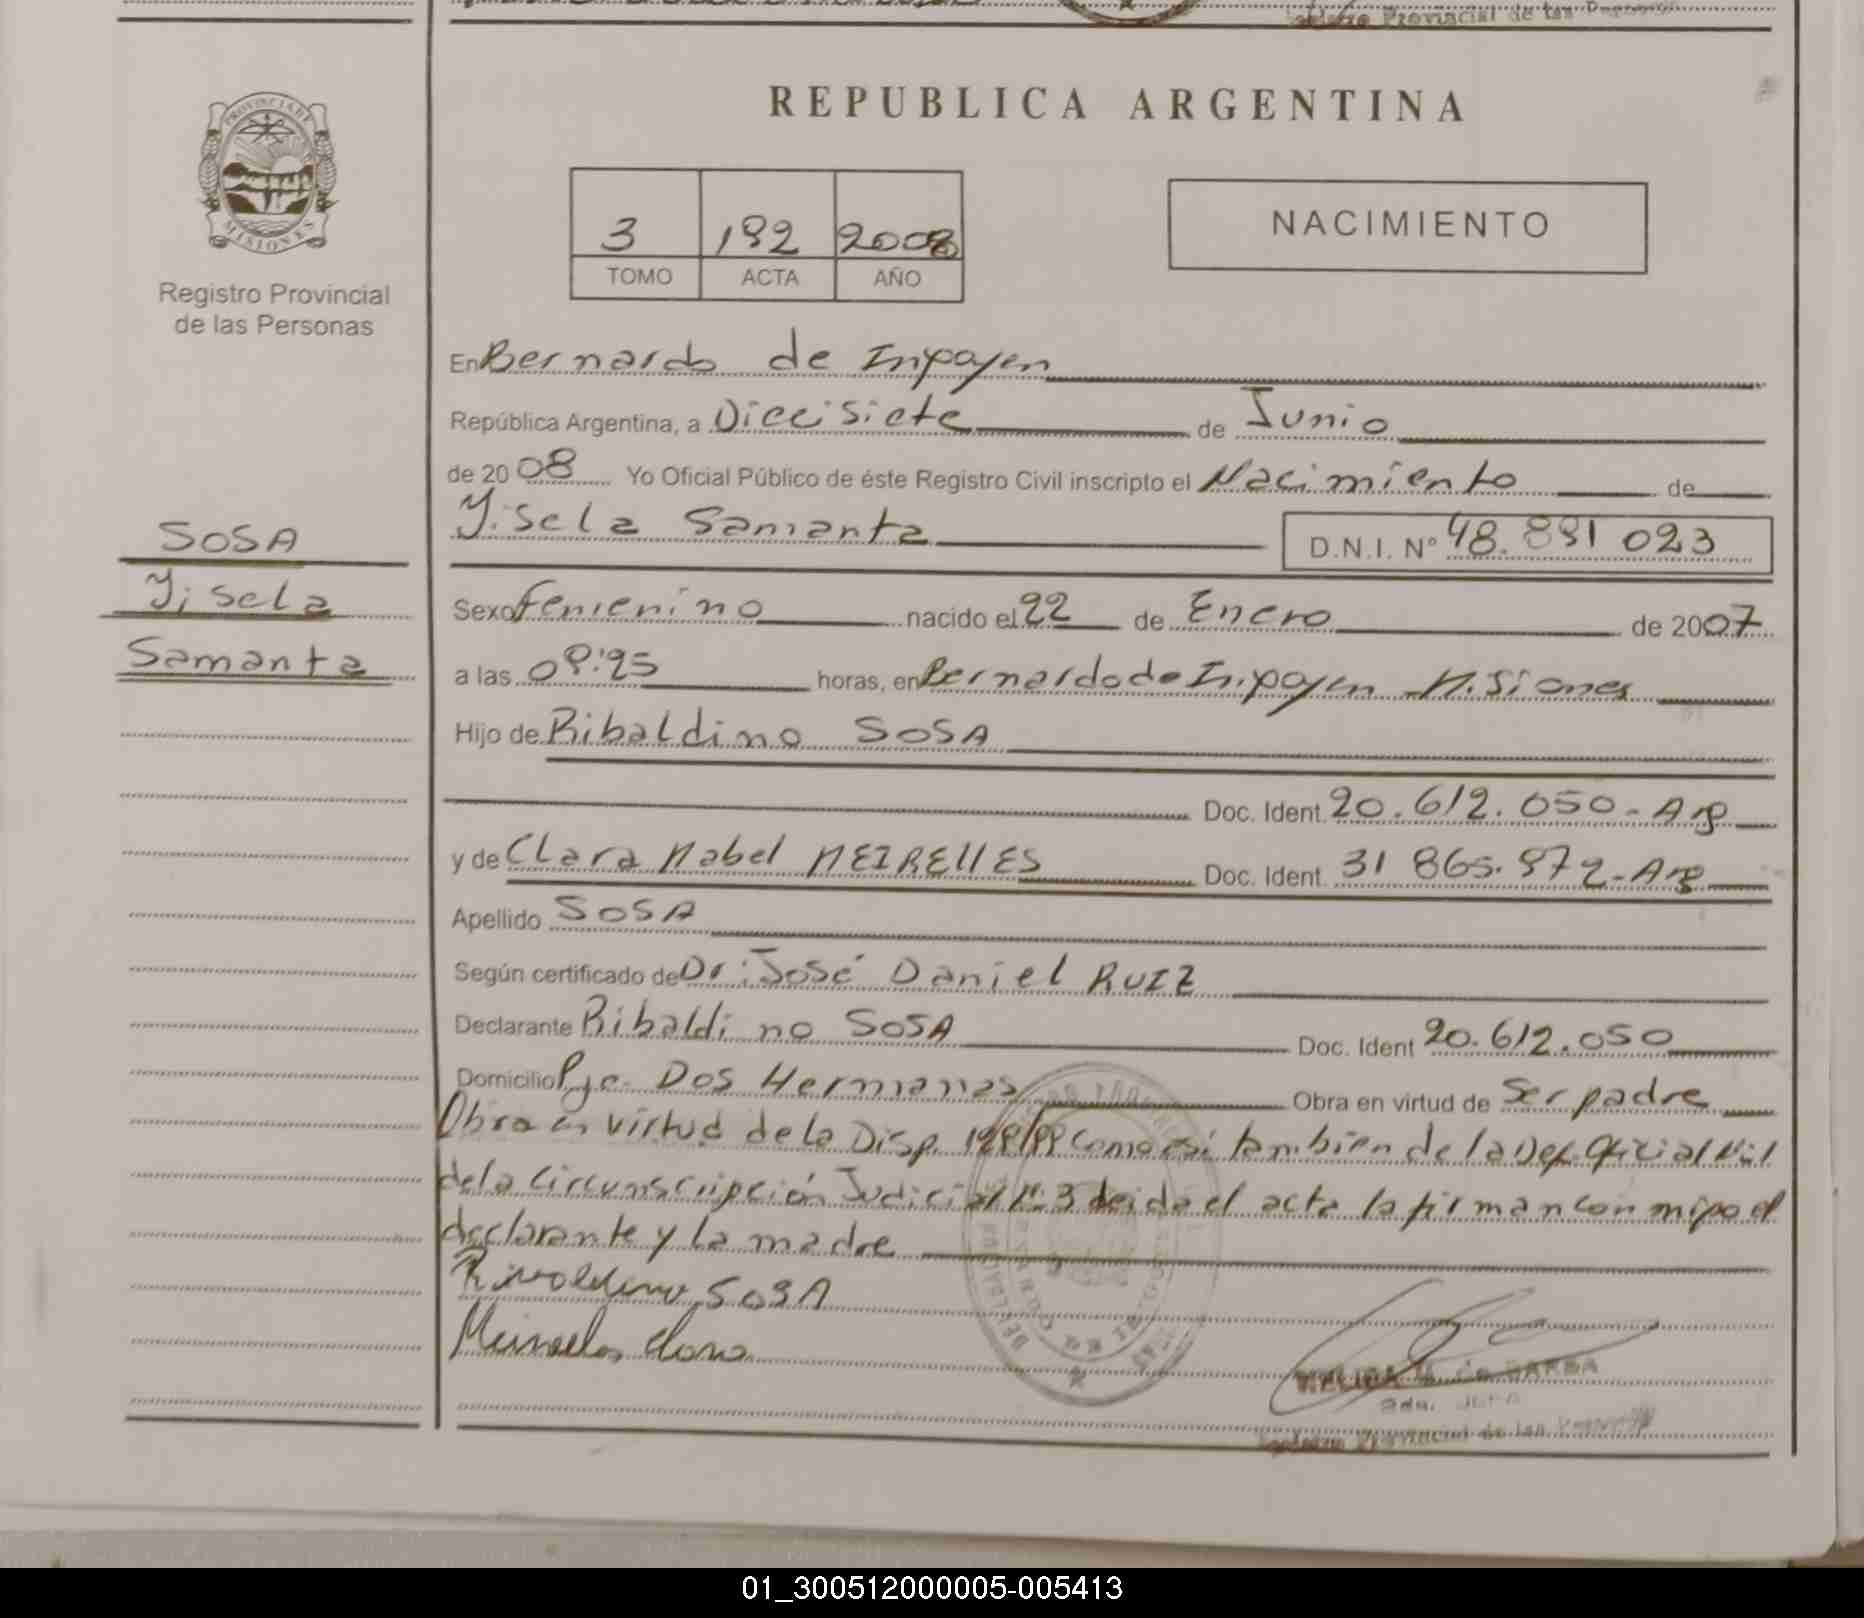 REPUBLICA ARGENTINA
PROVINCIA DE MISIONES
Registro Provincial
de las Personas
3 192 2008
TOMO ACTA AÑO
NACIMIENTO
En Bernardo de Irigoyen
República Argentina, a Diecisiete de Junio
de 20 08 Yo Oficial Público de éste Registro Civil inscripto el Nacimiento de
Yisela Samanta D.N.I. Nº 48.891 023
SOSA
Yisela
Samanta
Sexo Femenino nacido el 22 de Enero de 2007
a las horas, en Bernardo de Irigoyen Misiones
Hijo de Ribaldino SOSA
Doc. Ident. 20.612.050-Arg
y de Clara Mabel MEIRELLES Doc. Ident. 31 865.972-Arg
Apellido SOSA
Según certificado de Dr: José Daniel RUIZ
Declarante Ribaldino SOSA Doc. Ident 20.612.050
Domicilio Pje. Dos Hermanas Obra en virtud de Ser padre
Obra en virtud de la Disp. como asi también de la Def. Oficial
de la Circunscripción Judicial Nº 3 leida el acta la firman conmigo el
declarante y la madre
SOSA
Meirelles Clara
Registro Provincial de las Personas
01_300512000005-005413